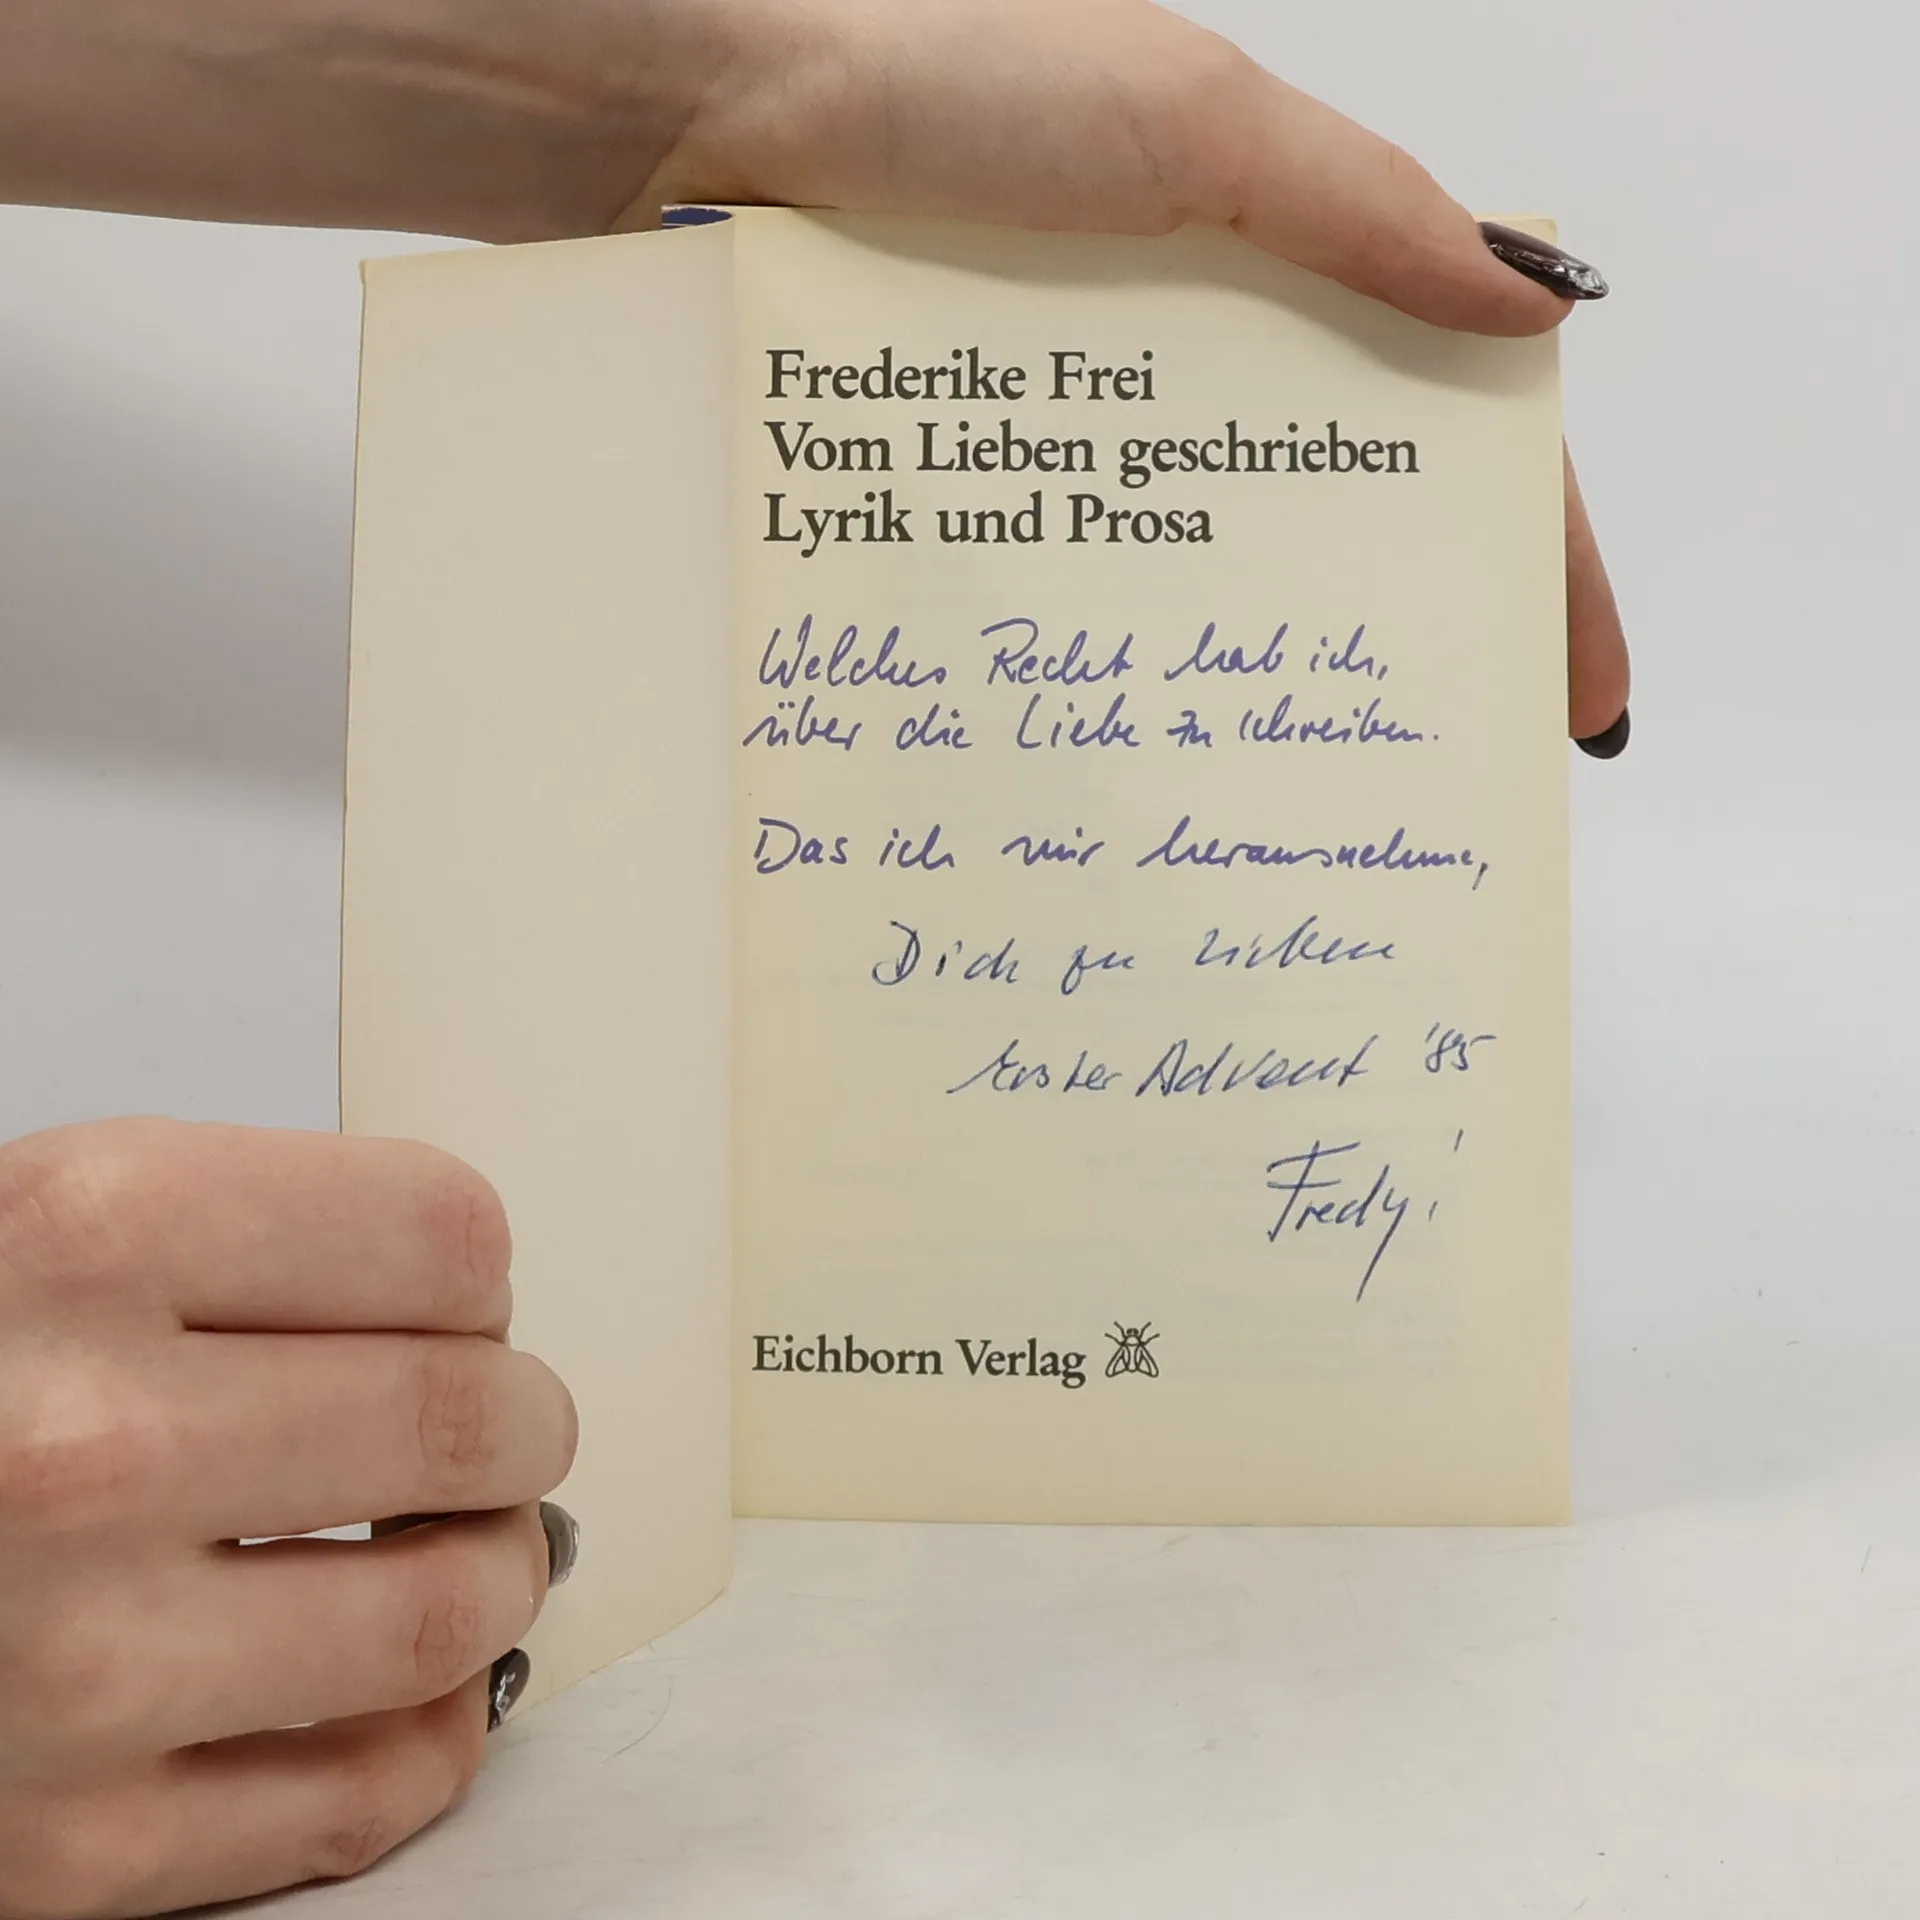 Frederike Frei
Vom Lieben geschrieben
Lyrik und Prosa
Welches Recht hab ich,
über die Liebe zu schreiben.
Das ich mir herausnehme,
Dich zu lieben
Erster Advent '85
Fredy!
Eichborn Verlag